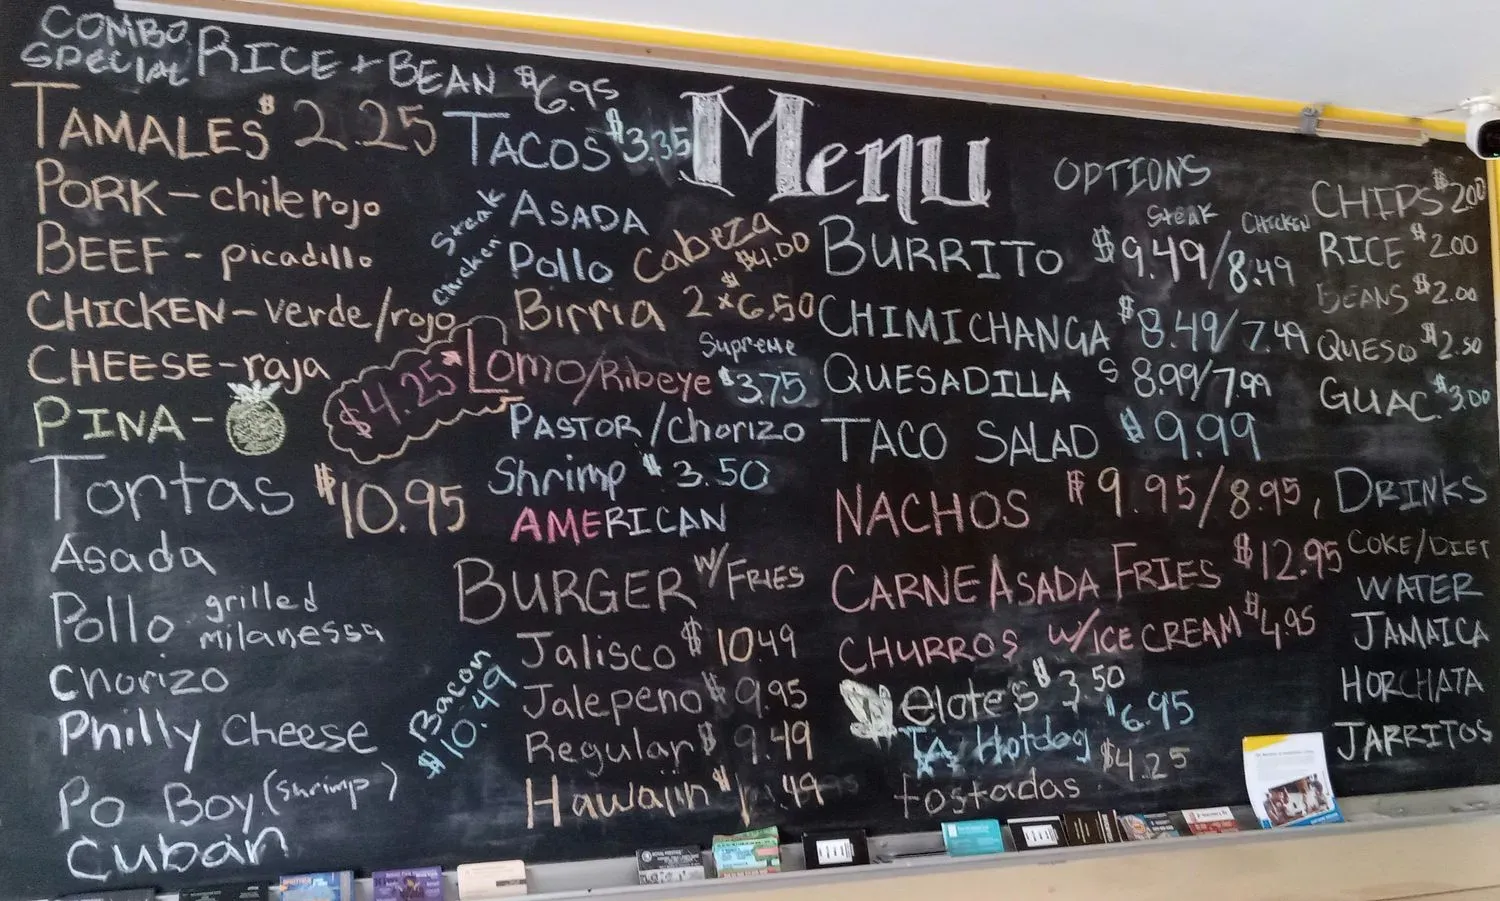 COMBO SPECIAL RICE + BEAN $6.95
TAMALES $2.25
PORK - chile rojo
BEEF - picadillo
CHICKEN - verde/rojo
CHEESE - raja
PINA -
Tortas $10.95
Asada
Pollo grilled milanessa
Chorizo
Philly Cheese
Po Boy (shrimp)
Cuban
TACOS $3.35
Steak ASADA
Chicken Pollo
Cabeza $4.00
Birria 2 x $6.50
$4.25 Lomo/Ribeye
Supreme $3.75
PASTOR/Chorizo
Shrimp $3.50
AMERICAN
BURGER W/FRIES
Jalisco $10.49
Jalepeno $9.95
Regular $9.49
Hawaiin
Bacon $10.49
Menu
OPTIONS
Steak Chicken
BURRITO $9.49/8.49
CHIMICHANGA $8.49/7.49
QUESADILLA $8.99/7.99
TACO SALAD $9.99
NACHOS $9.95/8.95
CARNE ASADA FRIES $12.95
CHURROS W/ICE CREAM $4.95
elote's $3.50
Hotdog $6.95
tostadas $4.25
CHIPS $2.00
RICE $2.00
BEANS $2.00
QUESO $2.50
GUAC. $3.00
DRINKS
COKE/DIET
WATER
JAMAICA
HORCHATA
JARRITOS